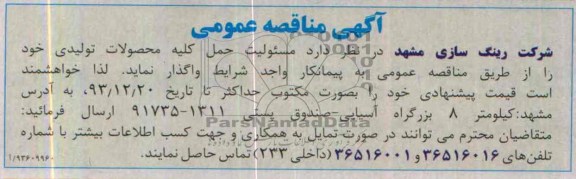 آگهی مناقصه عمومی
شرکت رینگ سازی مشهد در نظر دارد مسئولیت حمل کلیه محصولات تولیدی خود
را از طریق مناقصه عمومی به پیمانکار واجد شرایط واگذار نماید. لذا خواهشمند
است قیمت پیشنهادی خود را بصورت مکتوب حداکثر تا تاریخ ۹۳/۱۲/۲۰، به آدرس
مشهد:کیلومتر ۸ بزرگراه آسیایی-صندوق پستی ۱۳۱۱-۹۱۷۳۵ ارسال فرمائید:
متقاضیان محترم می توانند در صورت تمایل به همکاری و جهت کسب اطلاعات بیشتر با شماره
تلفن‌های ۳۶۵۱۶۰۱۶ و ۳۶۵۱۶۰۰۱ (داخلی ۲۳۳) تماس حاصل نمایند.
۹۳۶۰۹۹۶۰/۱
ParsNamadData